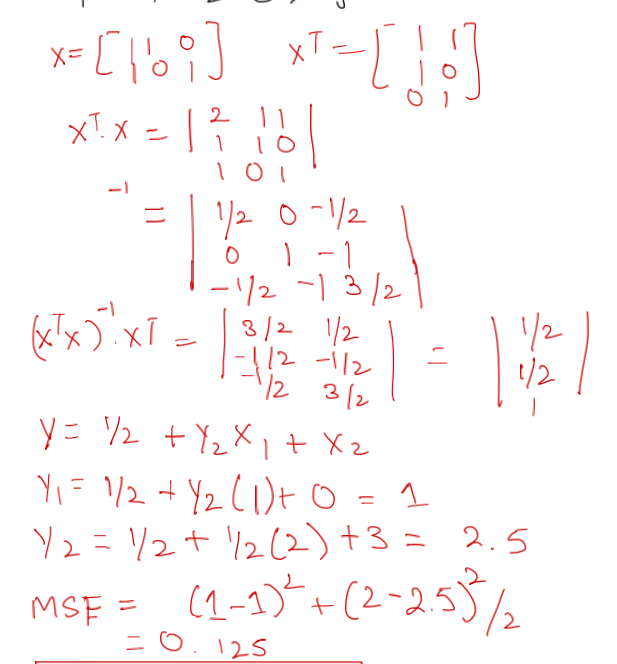 X = [ 1 1 0 xT = [ 1 1
1 0 1 ] 1 0
0 1 ]
xT. x = | 2 1 1 |
1 1 0
1 0 1
-1
= | 1/2 0 -1/2 |
0 1 -1
-1/2 -1 3/2
(xTx)-1. xT = | 3/2 1/2 | = | 1/2 |
-1/2 -1/2 1/2
-1/2 3/2 1
Y = 1/2 + Y2 X1 + X2
Y1 = 1/2 + Y2 (1) + 0 = 1
Y2 = 1/2 + 1/2 (2) + 3 = 2.5
MSE = (1-1)2 + (2-2.5)2/2
= 0.125